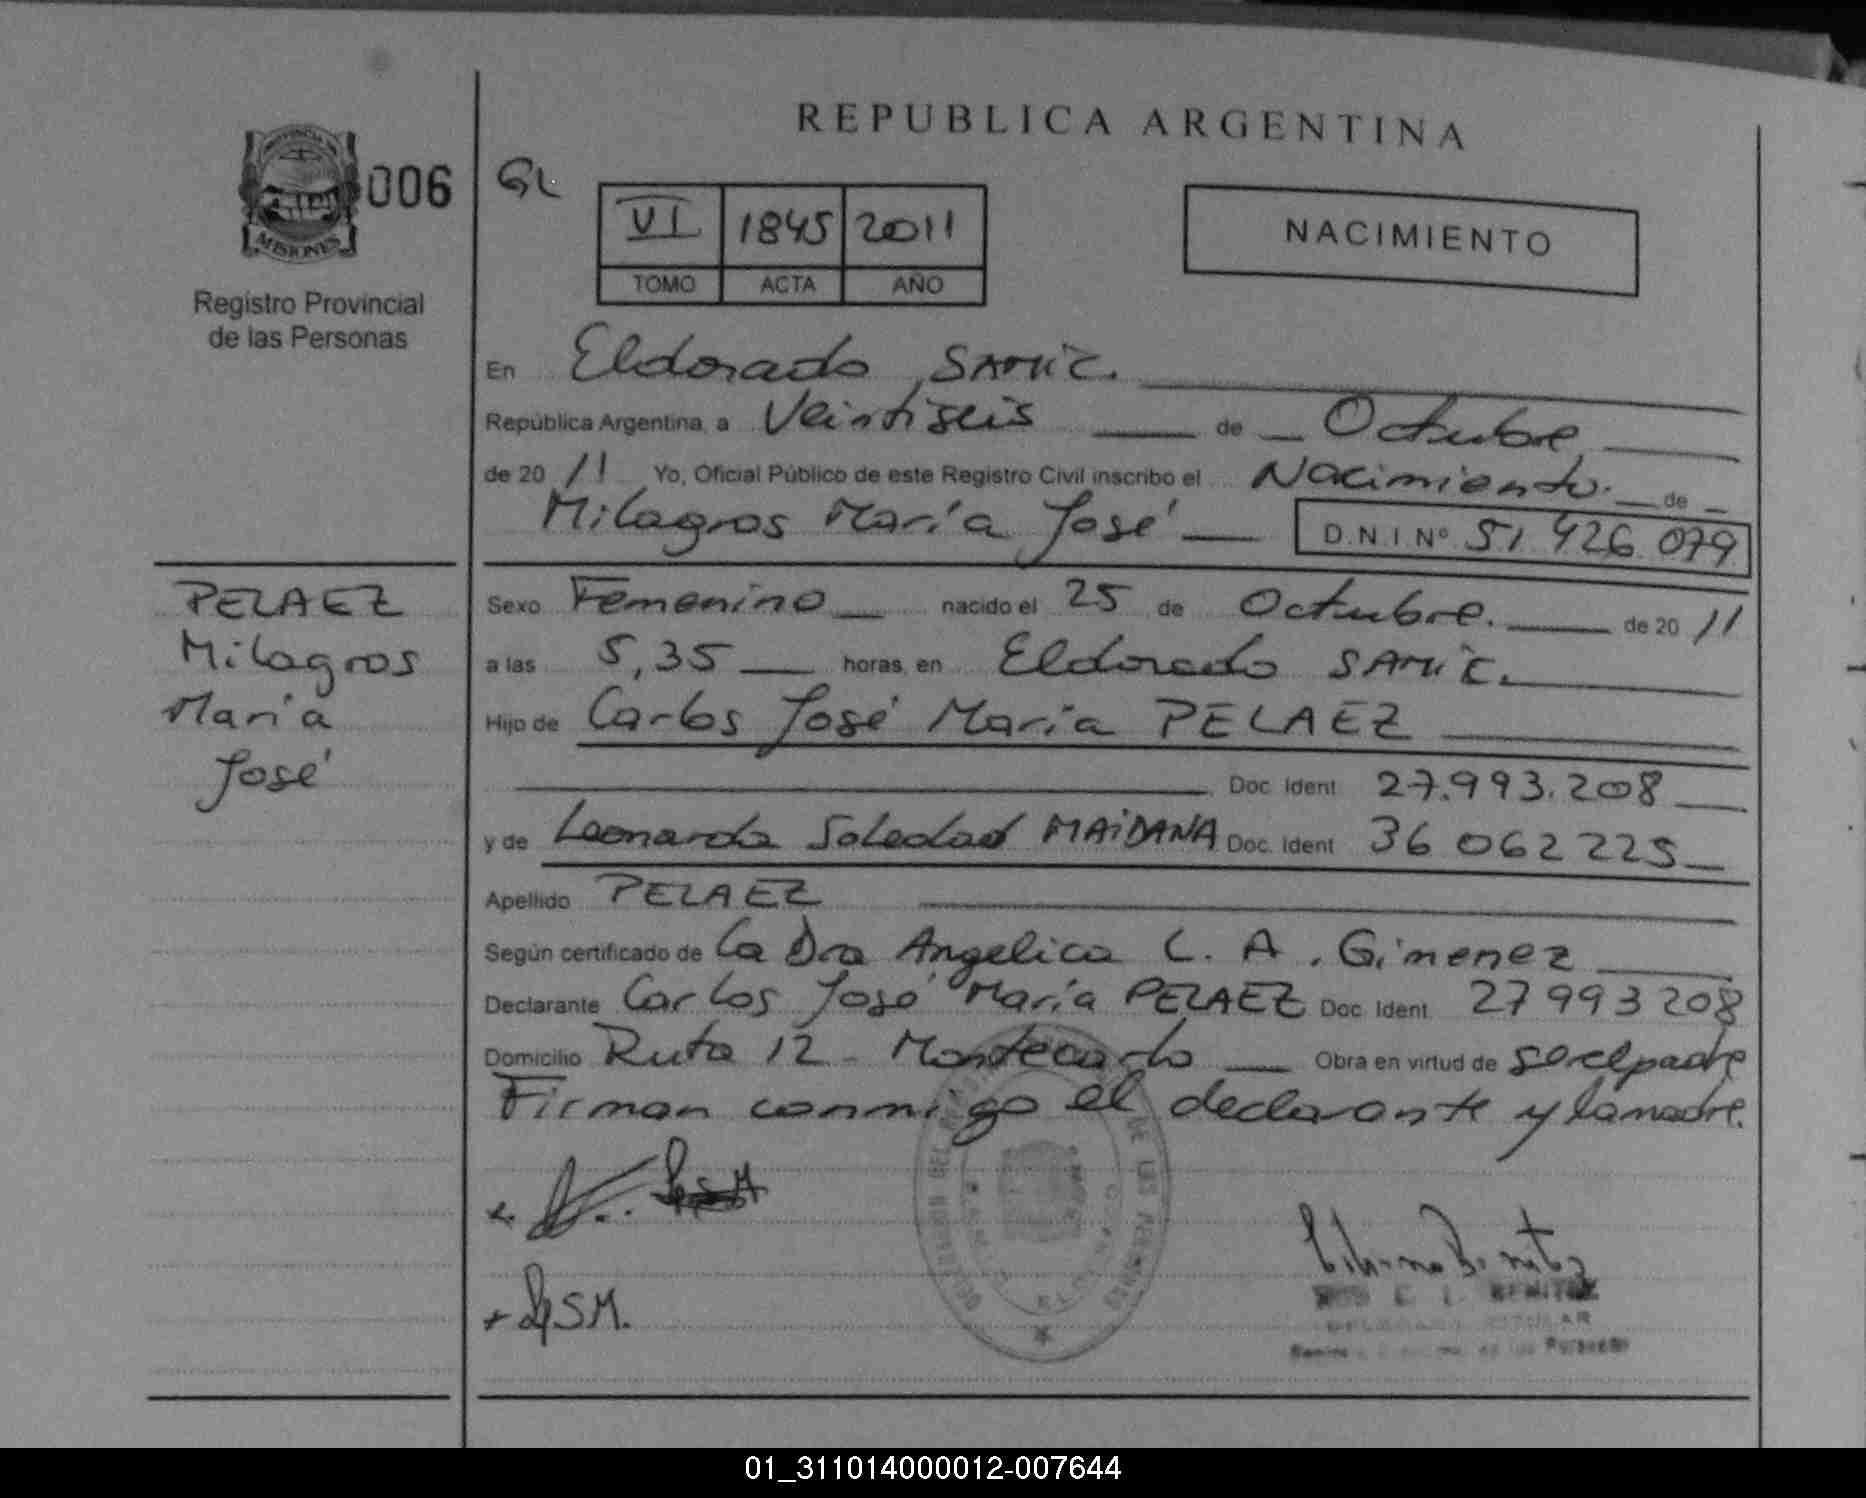 REPUBLICA ARGENTINA
PROVINCIA
MISIONES
006
GL
VI 1845 2011
TOMO ACTA AÑO
NACIMIENTO
Registro Provincial
de las Personas
En Eldorado, SAMIC.
República Argentina, a Veintiseis de Octubre
de 2011 Yo, Oficial Público de este Registro Civil inscribo el Nacimiento de
Milagros María José D.N.I Nº 51.426.079
PELAEZ
Milagros
María
José
Sexo Femenino nacido el 25 de Octubre. de 2011
a las 5,35 horas, en Eldorado SAMIC.
Hijo de Carlos José María PELAEZ
Doc. Ident 27.993.208
y de Leonarda Soledad MAIDANA Doc. Ident 36 062 225
Apellido PELAEZ
Según certificado de La Dra Angelica C. A. Gimenez
Declarante Carlos José María PELAEZ Doc. Ident. 27 993 208
Domicilio Ruta 12 - Montecarlo Obra en virtud de ser el padre
Firman conmigo el declarante y la madre.
DE LAS PERSONAS
BENITEZ
01_311014000012-007644